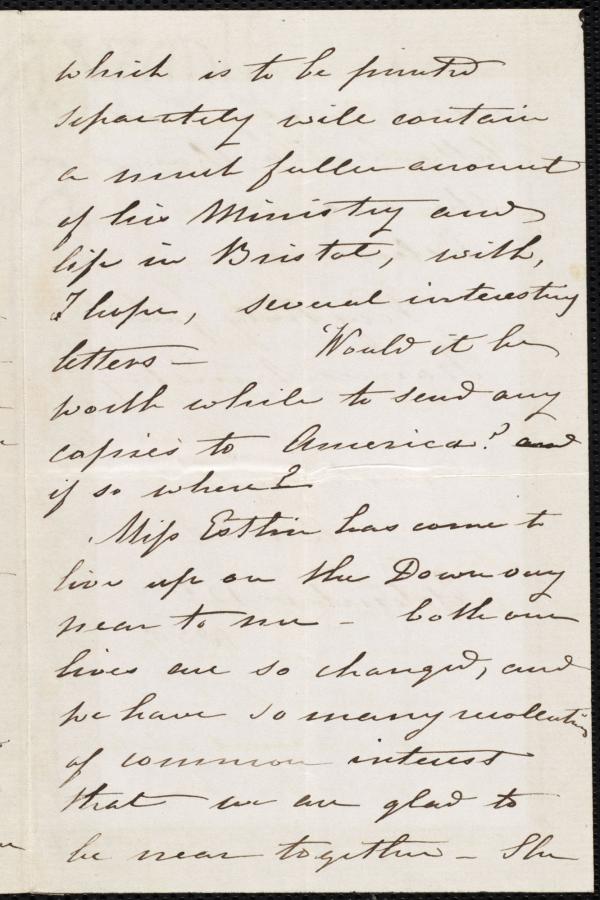 which is to be printed
separately will contain
a much fuller account
of his Ministry and
life in Bristol, with,
I hope, several interesting
letters — Would it be
worth while to send any
copies to America? and
if so where?
Miss Estlin has come to
live up on the Down very
near to me - both our
lives are so changed, and
we have so many recollections
of common interest
that we are glad to
be near together - She